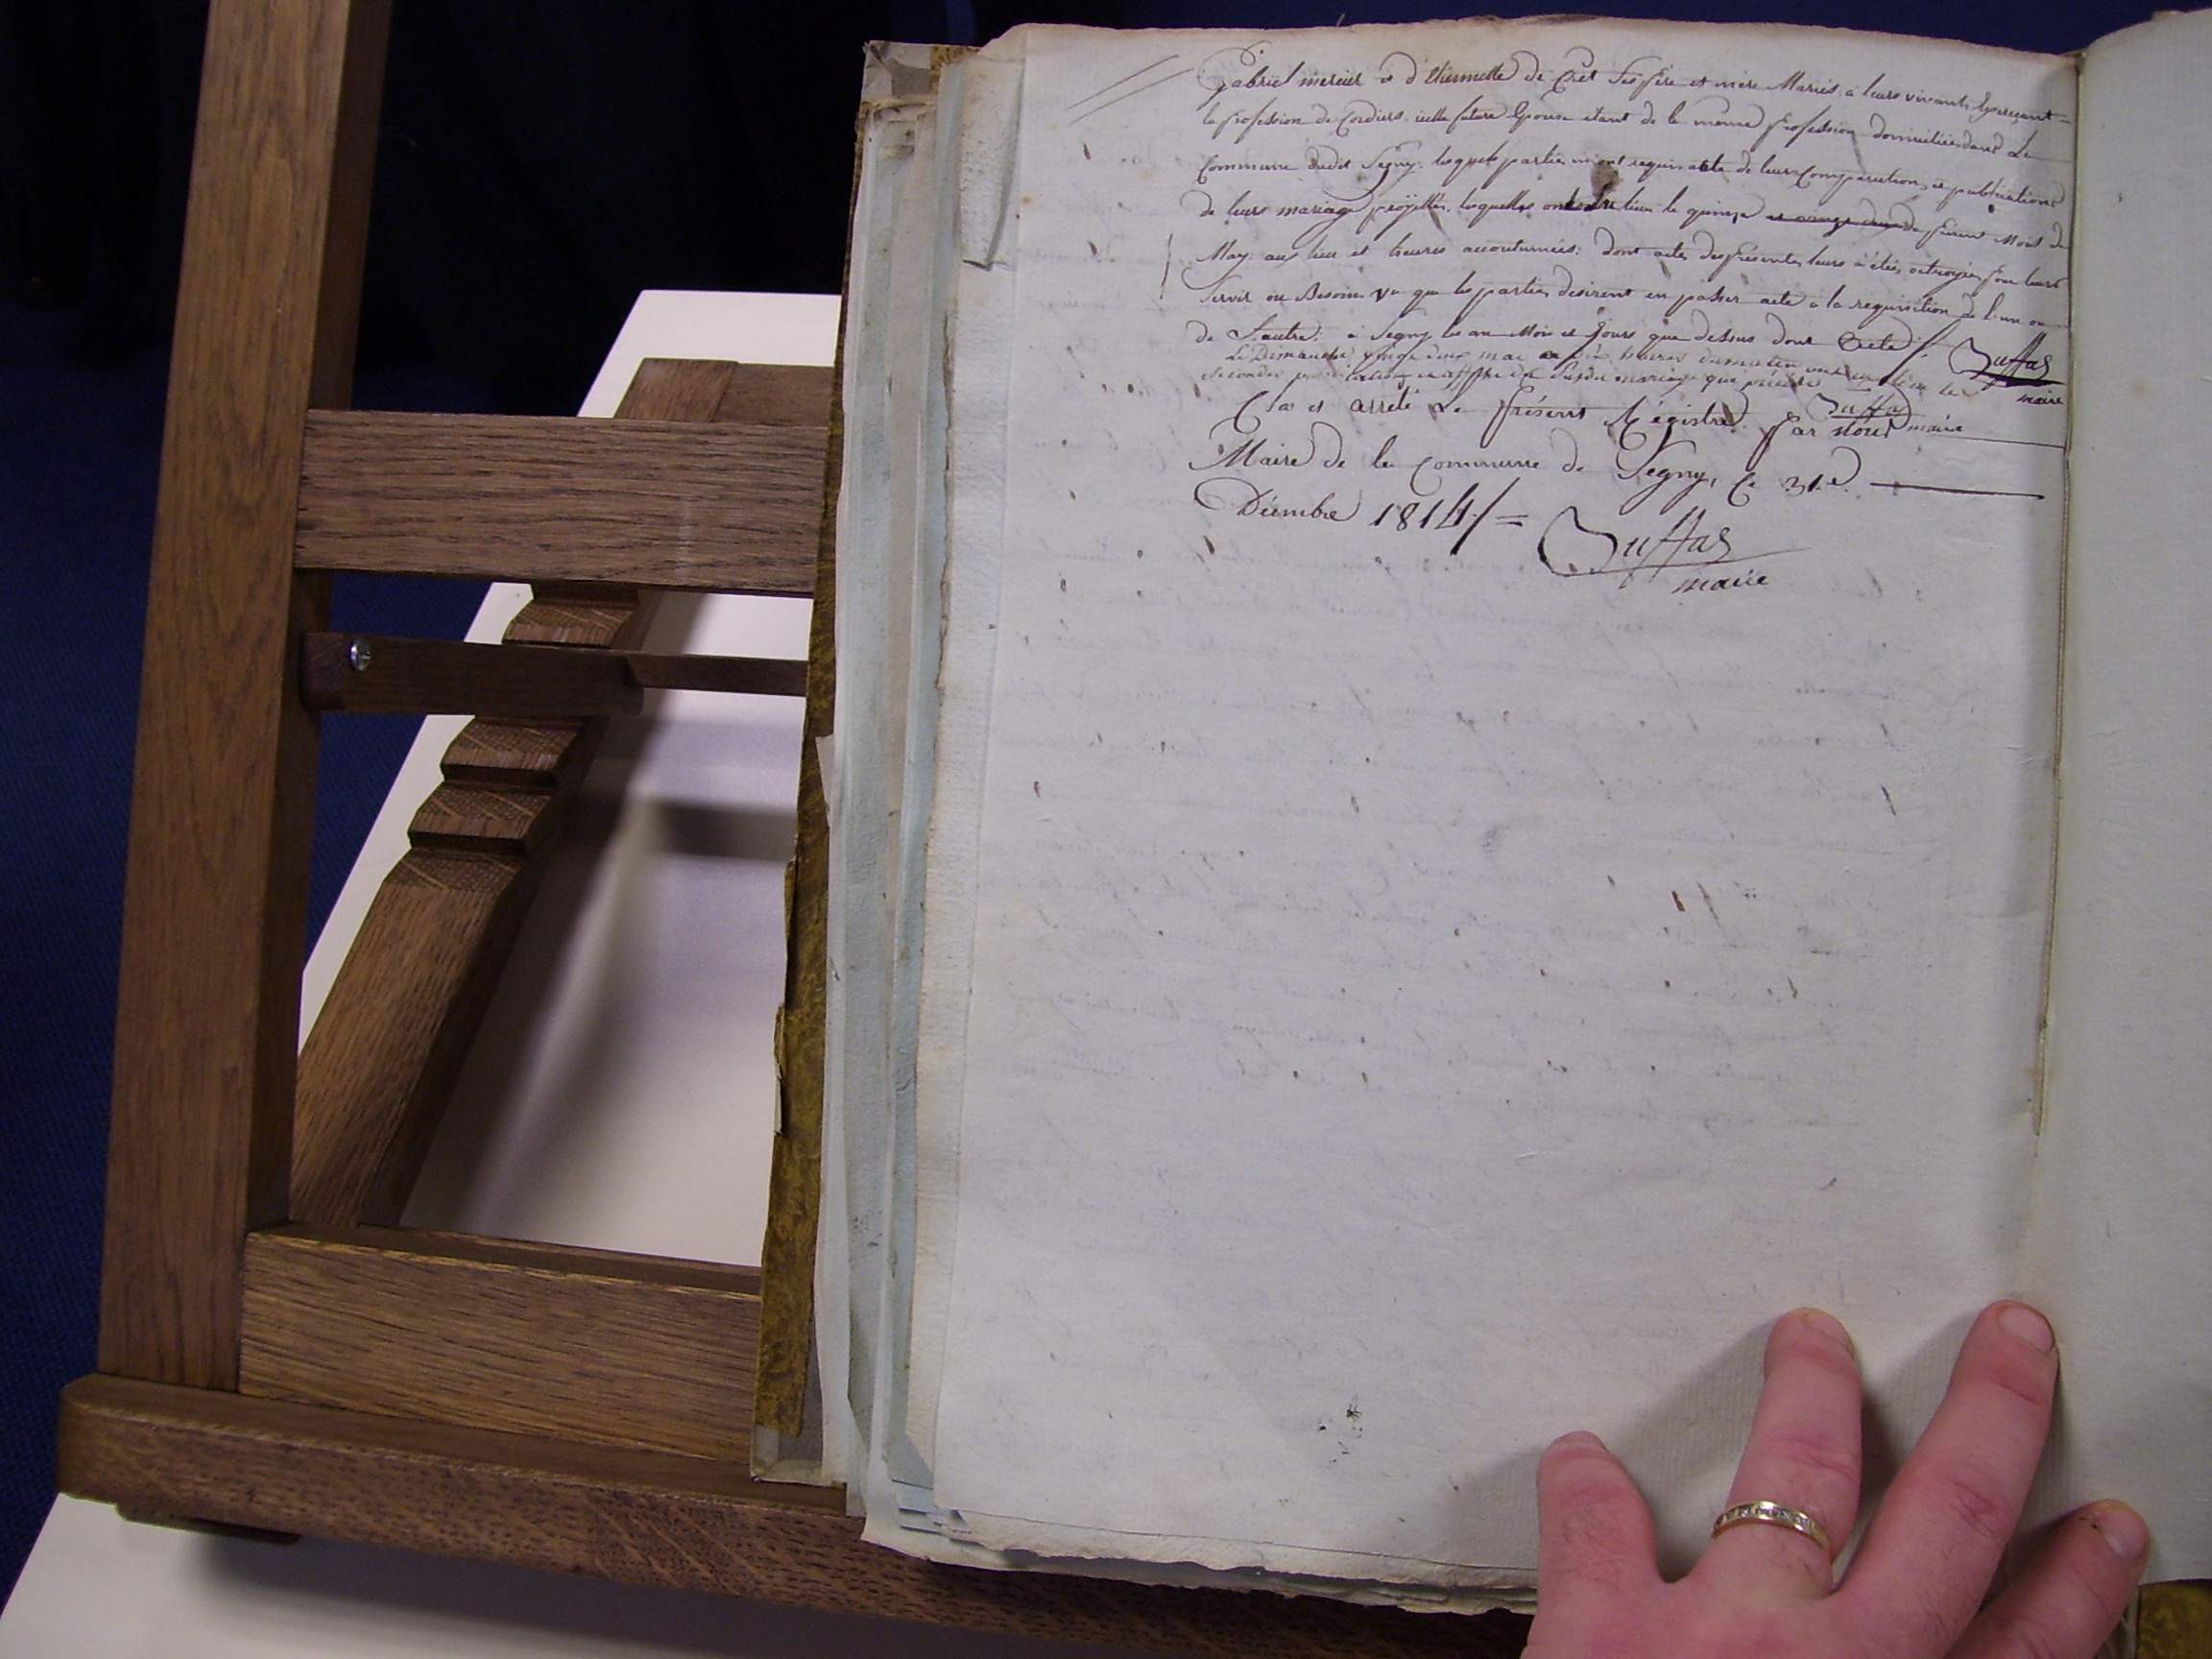 Gabriel mercier et d'Etiennette de Crêt Ses père et mère Mariés, à leurs vivants Exerceant
la profession de Cordiers. icelle future Epouse étant de la meme profession domiciliée dans La
Commune dudit Segny. lesquels parties m'ont requis acte de leurs Comparutions, et publications
de leurs mariage projettés. lesquelles lieu le quinze et vingt deux du présent Mois de
May. aux lieu et heures accoutumées: dont acte des présentes leurs à étés octroyés pour leurs
Servir au Besoin vu que les parties desirent en passer acte à la requisition de l'un ou
de L'autre. à Segny les an Mois et Jours que dessus dont Acte /. Duffas
Le Dimanche vingt deux mai heures du matin
seconde publication et affiche du Susdit mariage que précède maire
Clos et arrêté Le présent Régistre. Par Nous Duffas maire
Maire de la Commune de Segny, Ce 31.e
Décembre 1814 /=
Duffas
maire